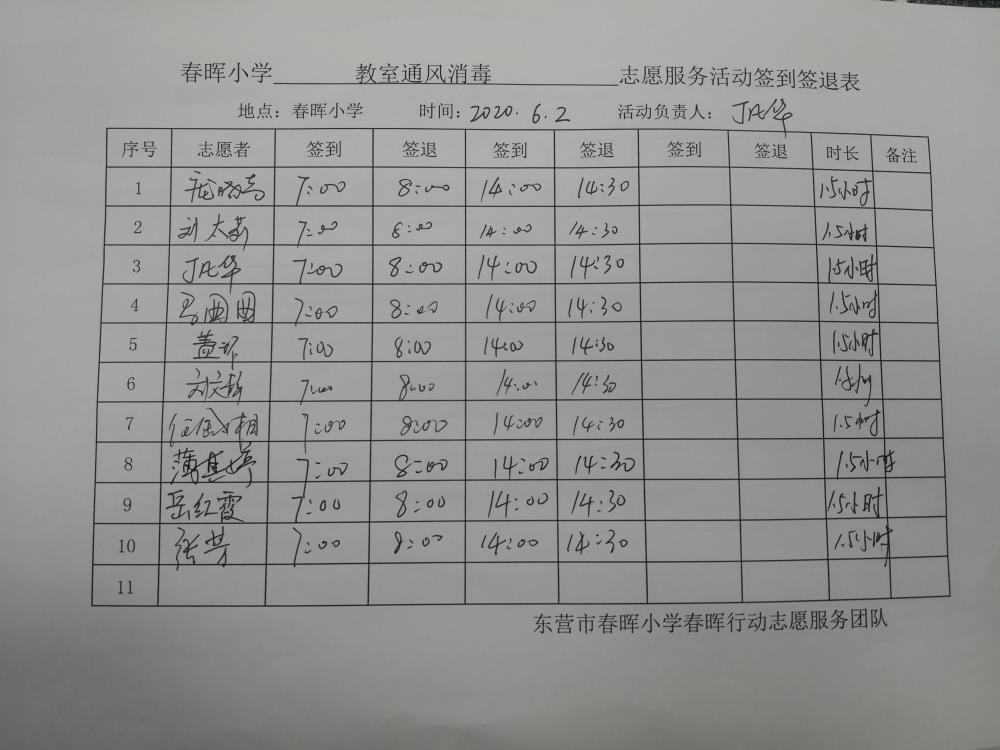 春晖小学 教室通风消毒 志愿服务活动签到签退表
地点：春晖小学 时间：2020.6.2 活动负责人：丁凡华
序号 志愿者 签到 签退 签到 签退 签到 签退 时长 备注
1 庞晓亮 7:00 8:00 14:00 14:30 1.5小时
2 刘太新 7:00 8:00 14:00 14:30 1.5小时
3 丁凡华 7:00 8:00 14:00 14:30 1.5小时
4 曲国 7:00 8:00 14:00 14:30 1.5小时
5 盖环 7:00 8:00 14:00 14:30 1.5小时
6 刘文 7:00 8:00 14:00 14:30 1.5小时
7 7:00 8:00 14:00 14:30 1.5小时
8 薄其婷 7:00 8:00 14:00 14:30 1.5小时
9 岳红霞 7:00 8:00 14:00 14:30 1.5小时
10 张芳 7:00 8:00 14:00 14:30 1.5小时
11
东营市春晖小学春晖行动志愿服务团队